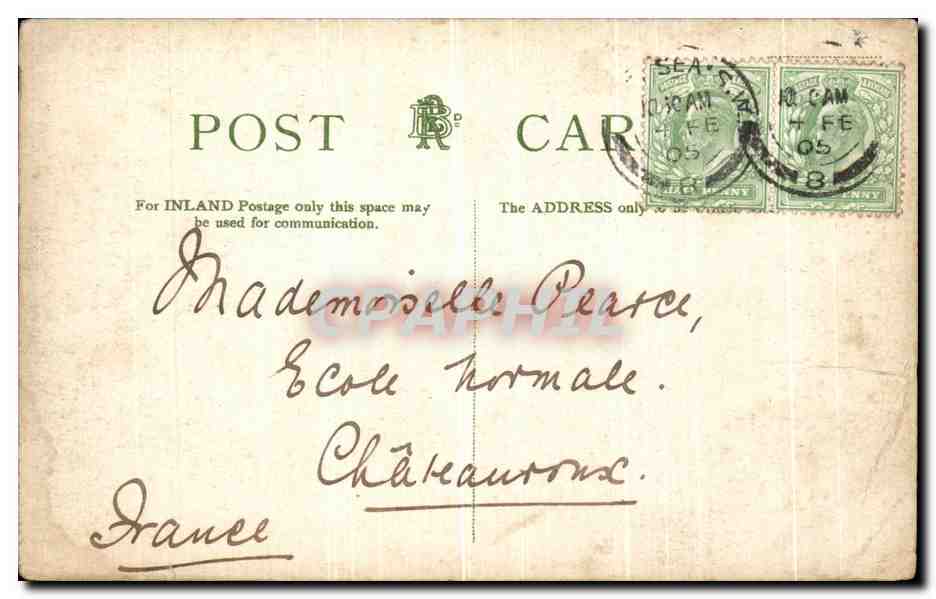 POST CAR
For INLAND Postage only this space may
be used for communication.
The ADDRESS only to be
SEA. S.W.
10.30 AM
4 FE
05
8
AM
4 FE
05
8
HALF PENNY
PENNY
Mademoiselle Pearce,
Ecole Normale.
Châteauroux.
France
CPAPHIL